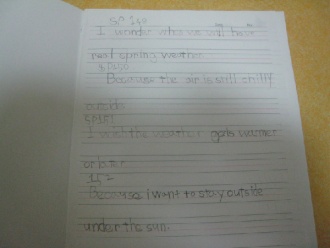 I wonder when we can have
real spring weather
Because the air is still chilly
outside
I wish the weather gets warmer
Because I want to stay outside
under the sun.